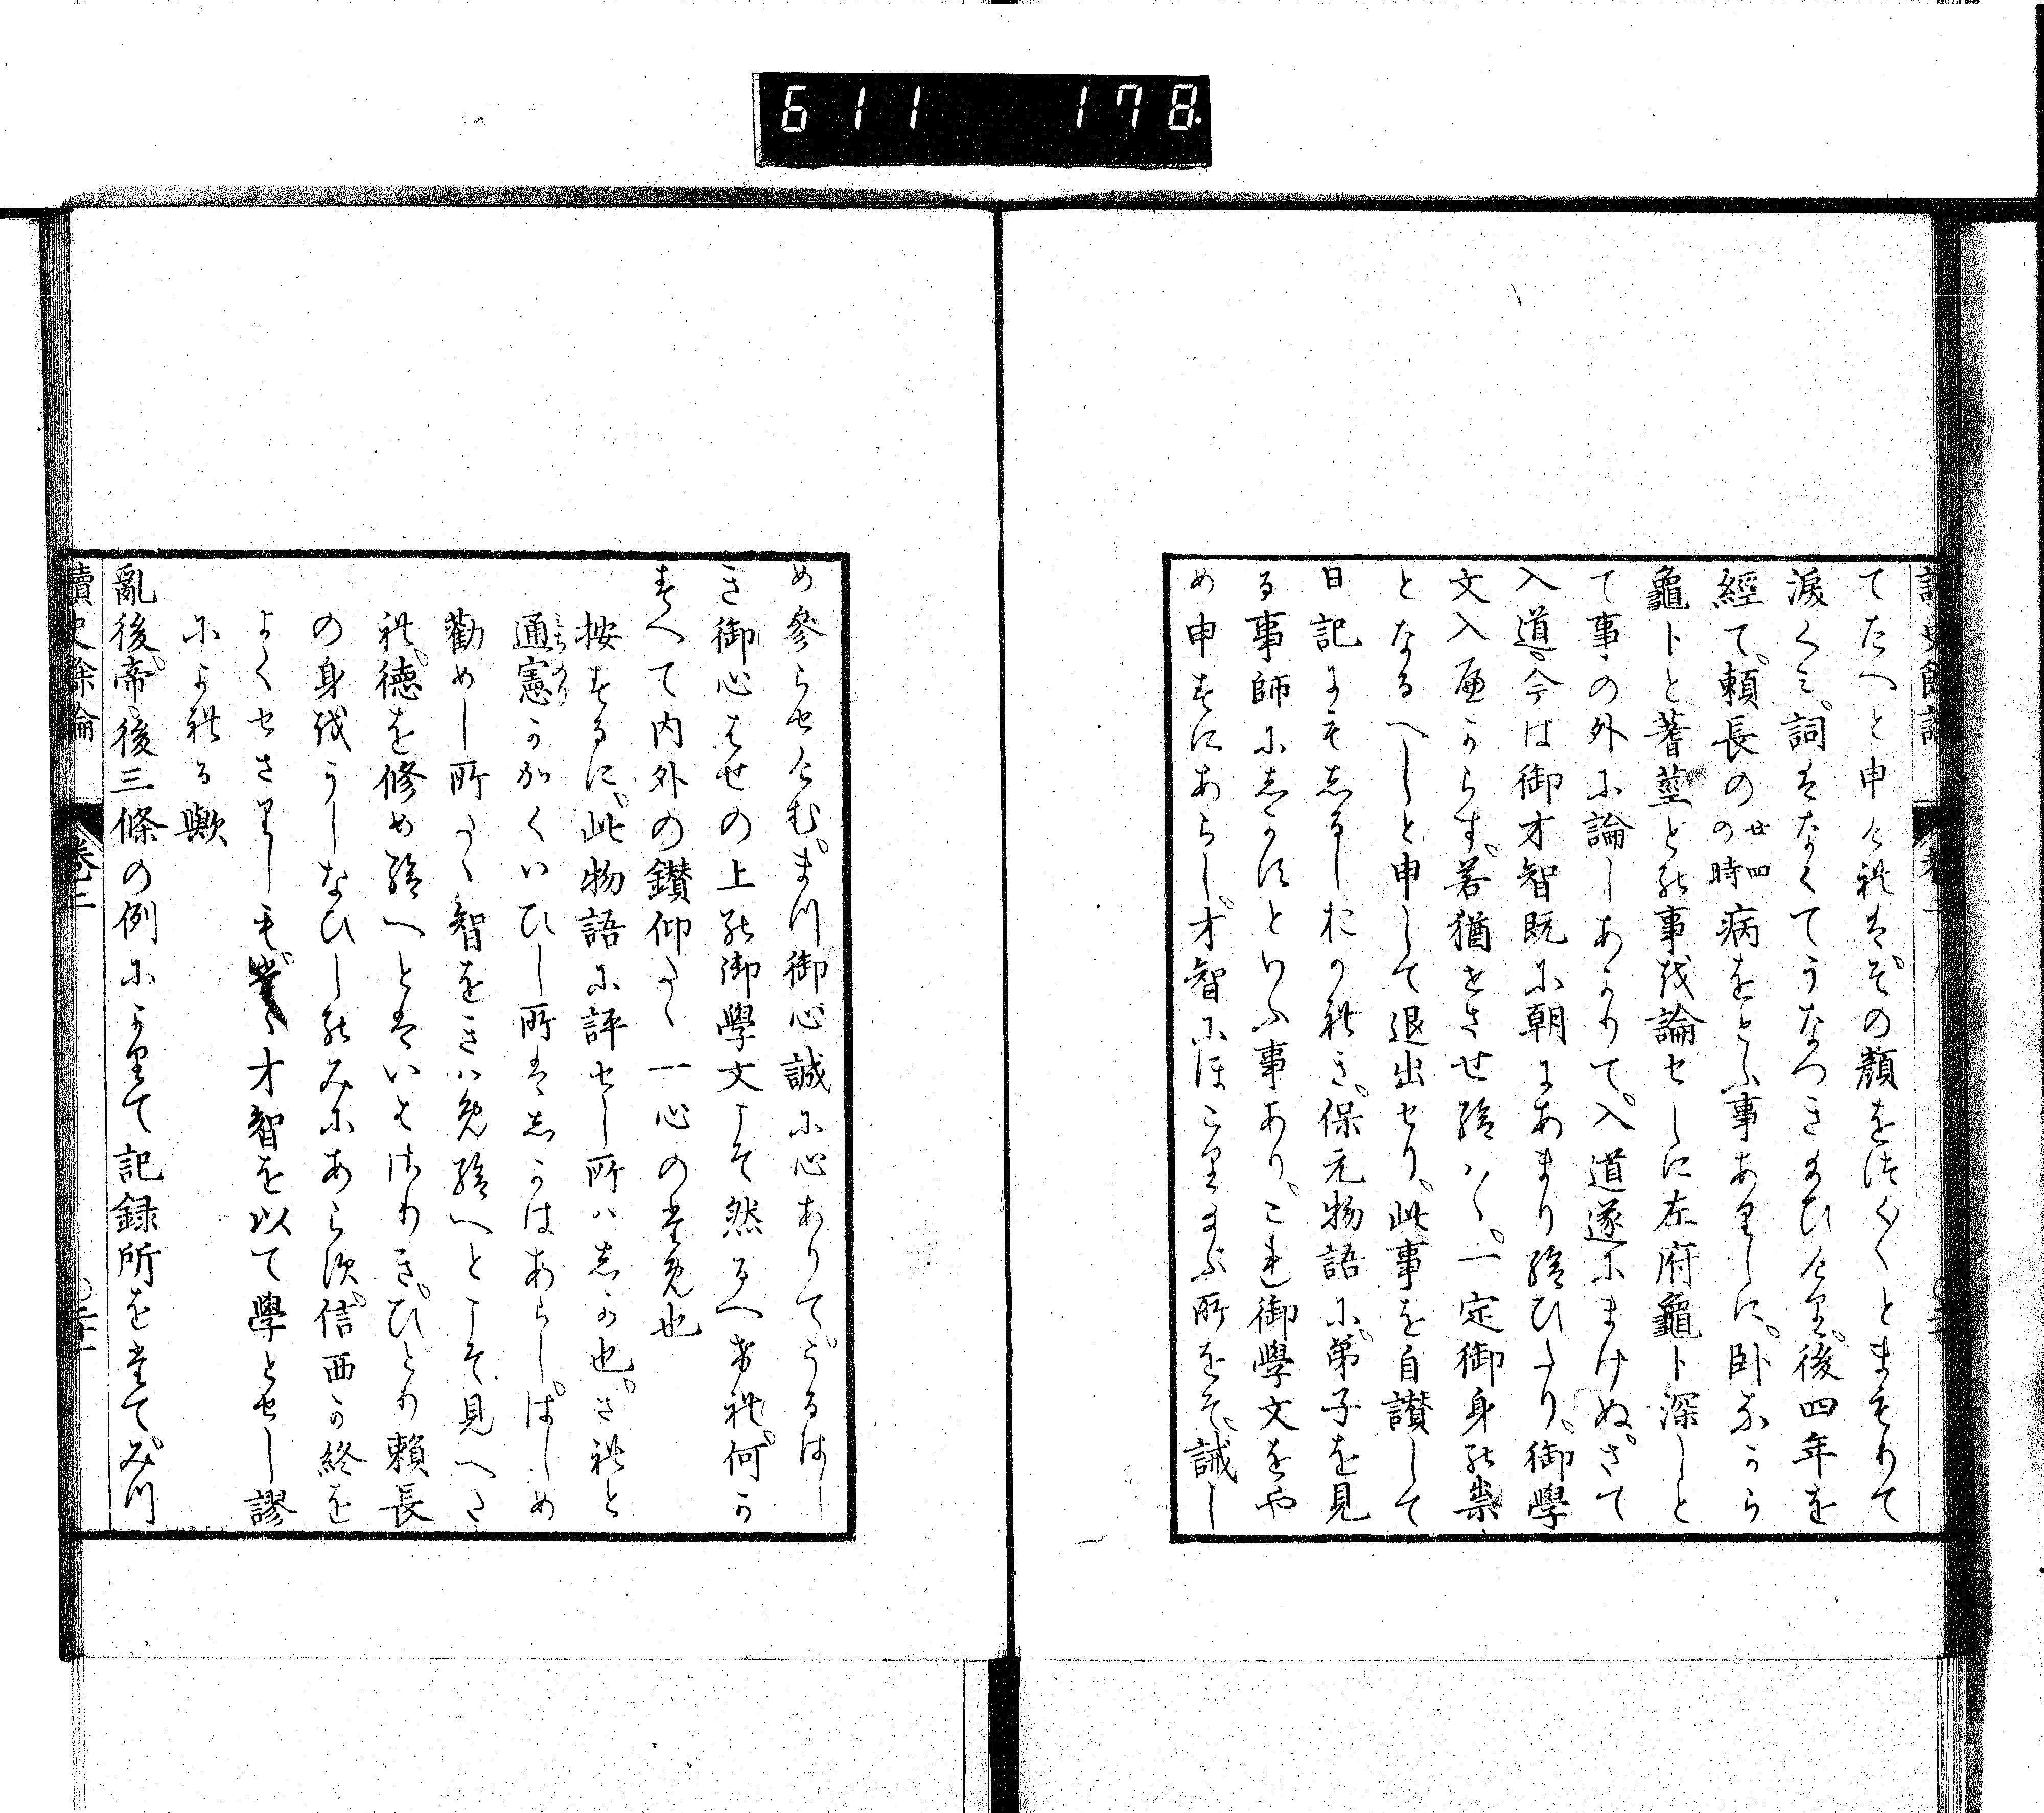 611 178
てたへと申されはその顔をつく〱とまもりて
涙くみ。詞はなくてうなつき給ひけり。後四年を
經て。頼長の廿四の時病をとふ事ありしに。臥なから
龜卜と蓍莖との事を論せしに左府龜卜深しと
て事の外に論しあかりて。入道遂にまけぬ。さて
入道。今は御才智既に朝にあまり給ひたり。御學
文入へからす。若猶せさせ給はゝ。一定御身の祟
となるへしと申して退出せり。此事を自讃して
日記にもしるしおかれき。保元物語に。弟子を見
る事師にしかすといふ事あり。これ御學文をや
め申すにあらし。才智にほこり給ふ所をそ。誡し
め參らせけむ。まつ御心誠に心ありて。うるはし
き御心はせの上の御學文こそ然るへけれ。何か
すへて内外の鑽仰たゝ一心の爲也
按するに。此物語に評せし所はしか也。されと
通憲かかくいひし所はしかはあらし。はしめ
勸めし所たゝ智をきはめ給へとこそ見へた
れ。徳を修め給へとはいはさりき。ひとり頼長
の身をうしなひしのみにあらす。信西か終を
よくせさりしも。たゝ才智を以て學とせし謬
によれる歟
亂後。帝。後三條の例によりて記録所をたて。みつ
讀史餘論
卷二